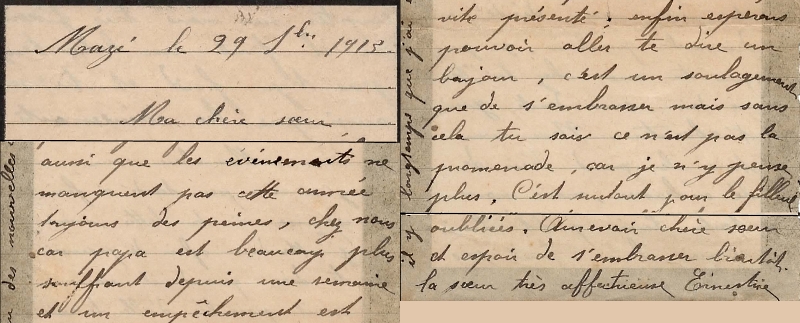 Mazé le 29 1913
Ma chère sœur
aussi que les événements ne
manquent pas cette année
toujours des peines, chez nous
car papa est beaucoup plus
souffrant depuis une semaine
et un empêchement est
des nouvelles
vite présenté. enfin espérons
pouvoir aller te dire un
bonjour, c'est un soulagement
que de s'embrasser mais sans
cela tu sais ce n'est pas la
promenade, car je n'y pense
plus. C'est surtout pour le filleul
oubliés. Aurevoir chère sœur
et espoir de s'embrasser bientôt.
ta sœur très affectueuse Ernestine
il y longtemps que j'ai